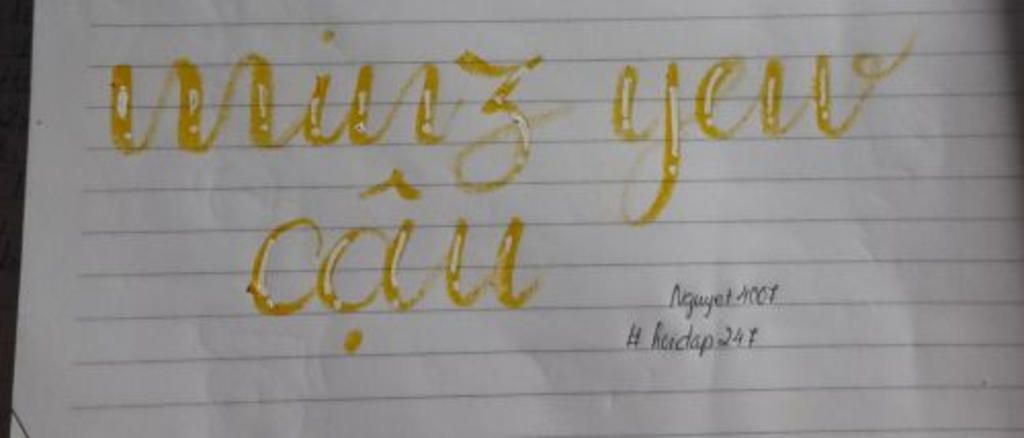 minz yew
cậu
Nguyet4007
# hoidap247